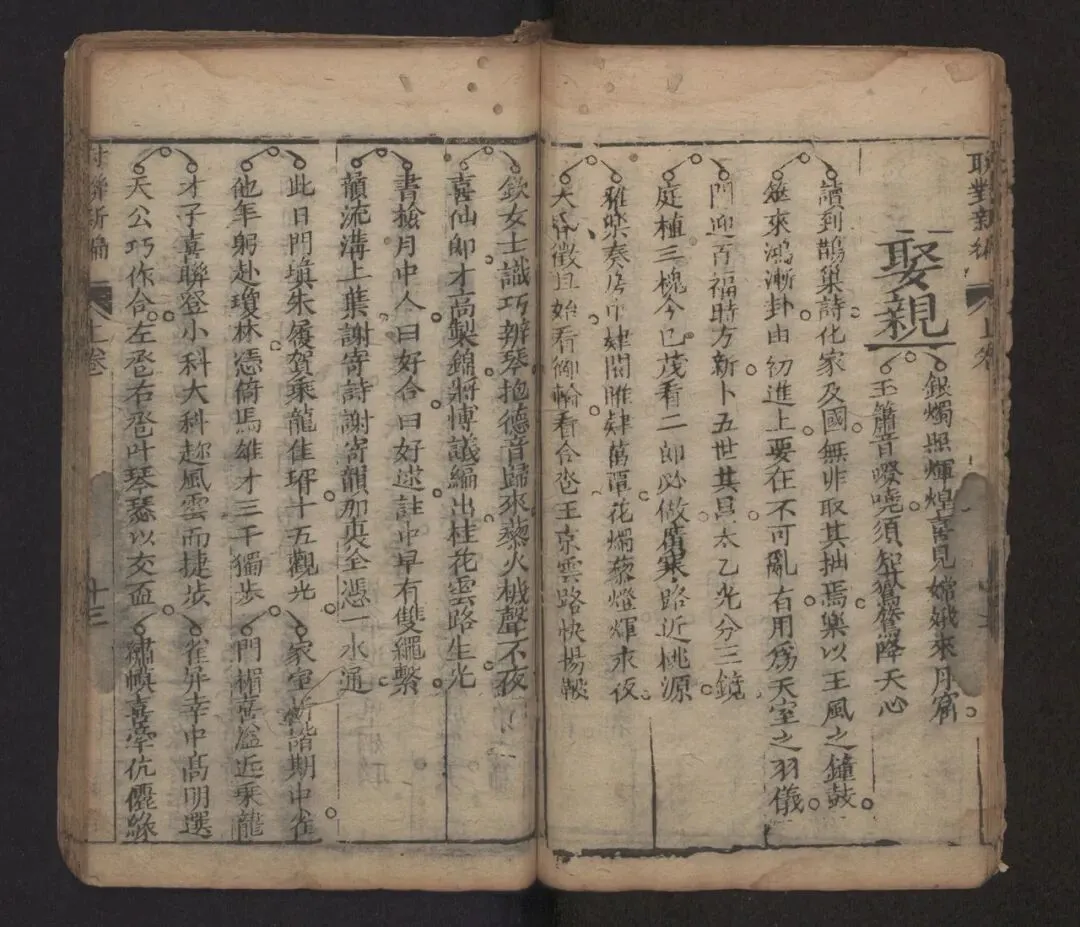 聯對新編
上卷
娶親
銀燭照輝煌喜見嫦娥來月窟
玉簫音嘵須知降天心
讀到鵲巢詩化家及國無非取其拙焉樂以王風之鐘鼓
筮來鴻漸卦由初進上要在不可亂有用爲天室之羽儀
門迎百福時方新卜五世其昌太乙光分三鏡
庭植三槐今已茂看二郎必做廣寒路近桃源
雅樂奏房中肄關雎肄萬覃花燭藜燈輝永夜
大昏徵且始看御輪看合卺玉京雲路快揚鞭
欽女士識巧辨琴抱德音歸來藜火機聲不夜
喜仙郎才高製錦將博議編出桂花雲路生光
書搶月中今曰好合曰好逑註中早有雙繩繫
韻流溝上葉謝寄詩謝寄韻加真全憑一水通
此日門填朱履賀乘龍佳壻十五觀光
他年躬赴瓊林憑倚馬雄才三千獨步
家室新諧期中雀
門楣喜溢近乘龍
才子喜聯登小科大科趂風雲而捷步
天公巧作合左卺右卺叶琴瑟以交盃
雀屏幸中高明選
繡幙喜牽伉儷緣
對聯新編
上卷
十三